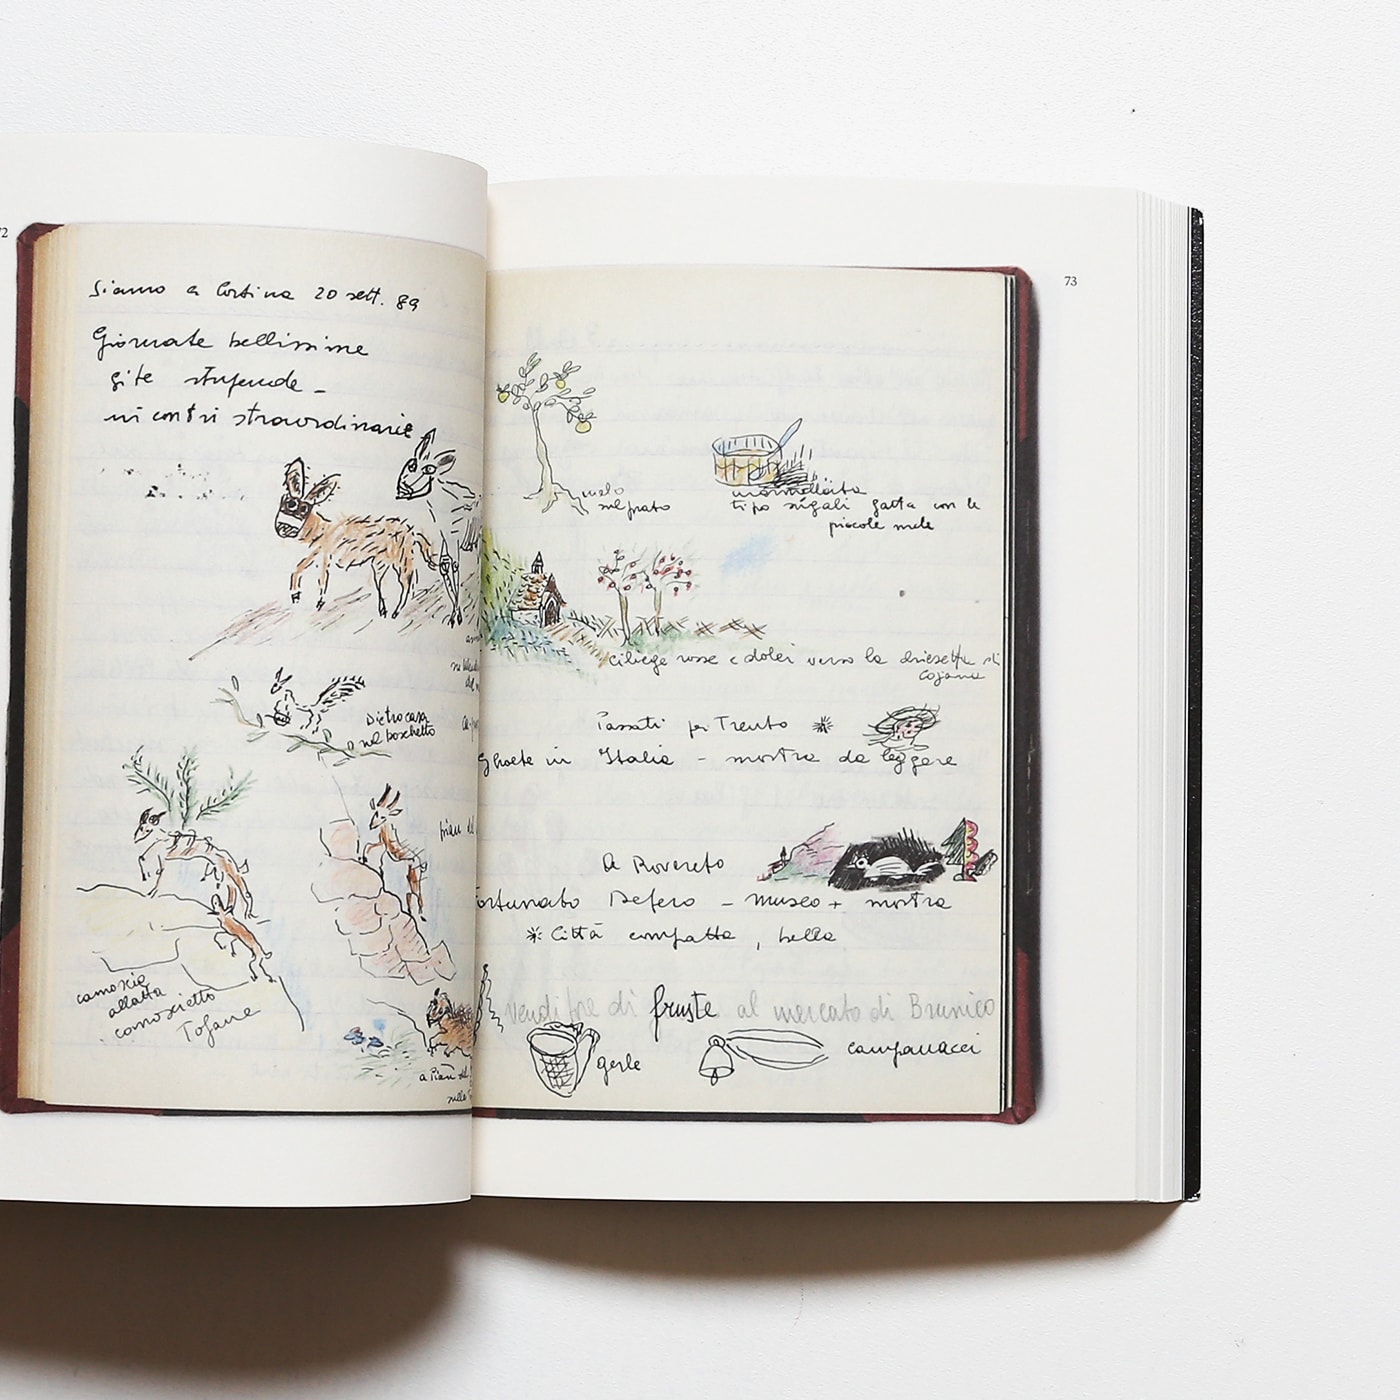 72
Siamo a Cortina 20 sett. 89
Giornate bellissime
gite stupende -
incontri straordinarie
Dietrocasa
nel boschetto
camoscio
allatta
camoscietto
Tofane
pian del
a Pian del
73
melo
sul prato
marmellata
tipo rigali fatta con le
piccole mele
ciliege rosse e dolci verso la chiesetta di
Cojana
Passati per Trento
Ghoete in Italia - mostra da leggere
A Rovereto
Fortunato Depero - museo + mostra
Città compatta, bella
venditore di fruste al mercato di Brunico
gerle
campanacci